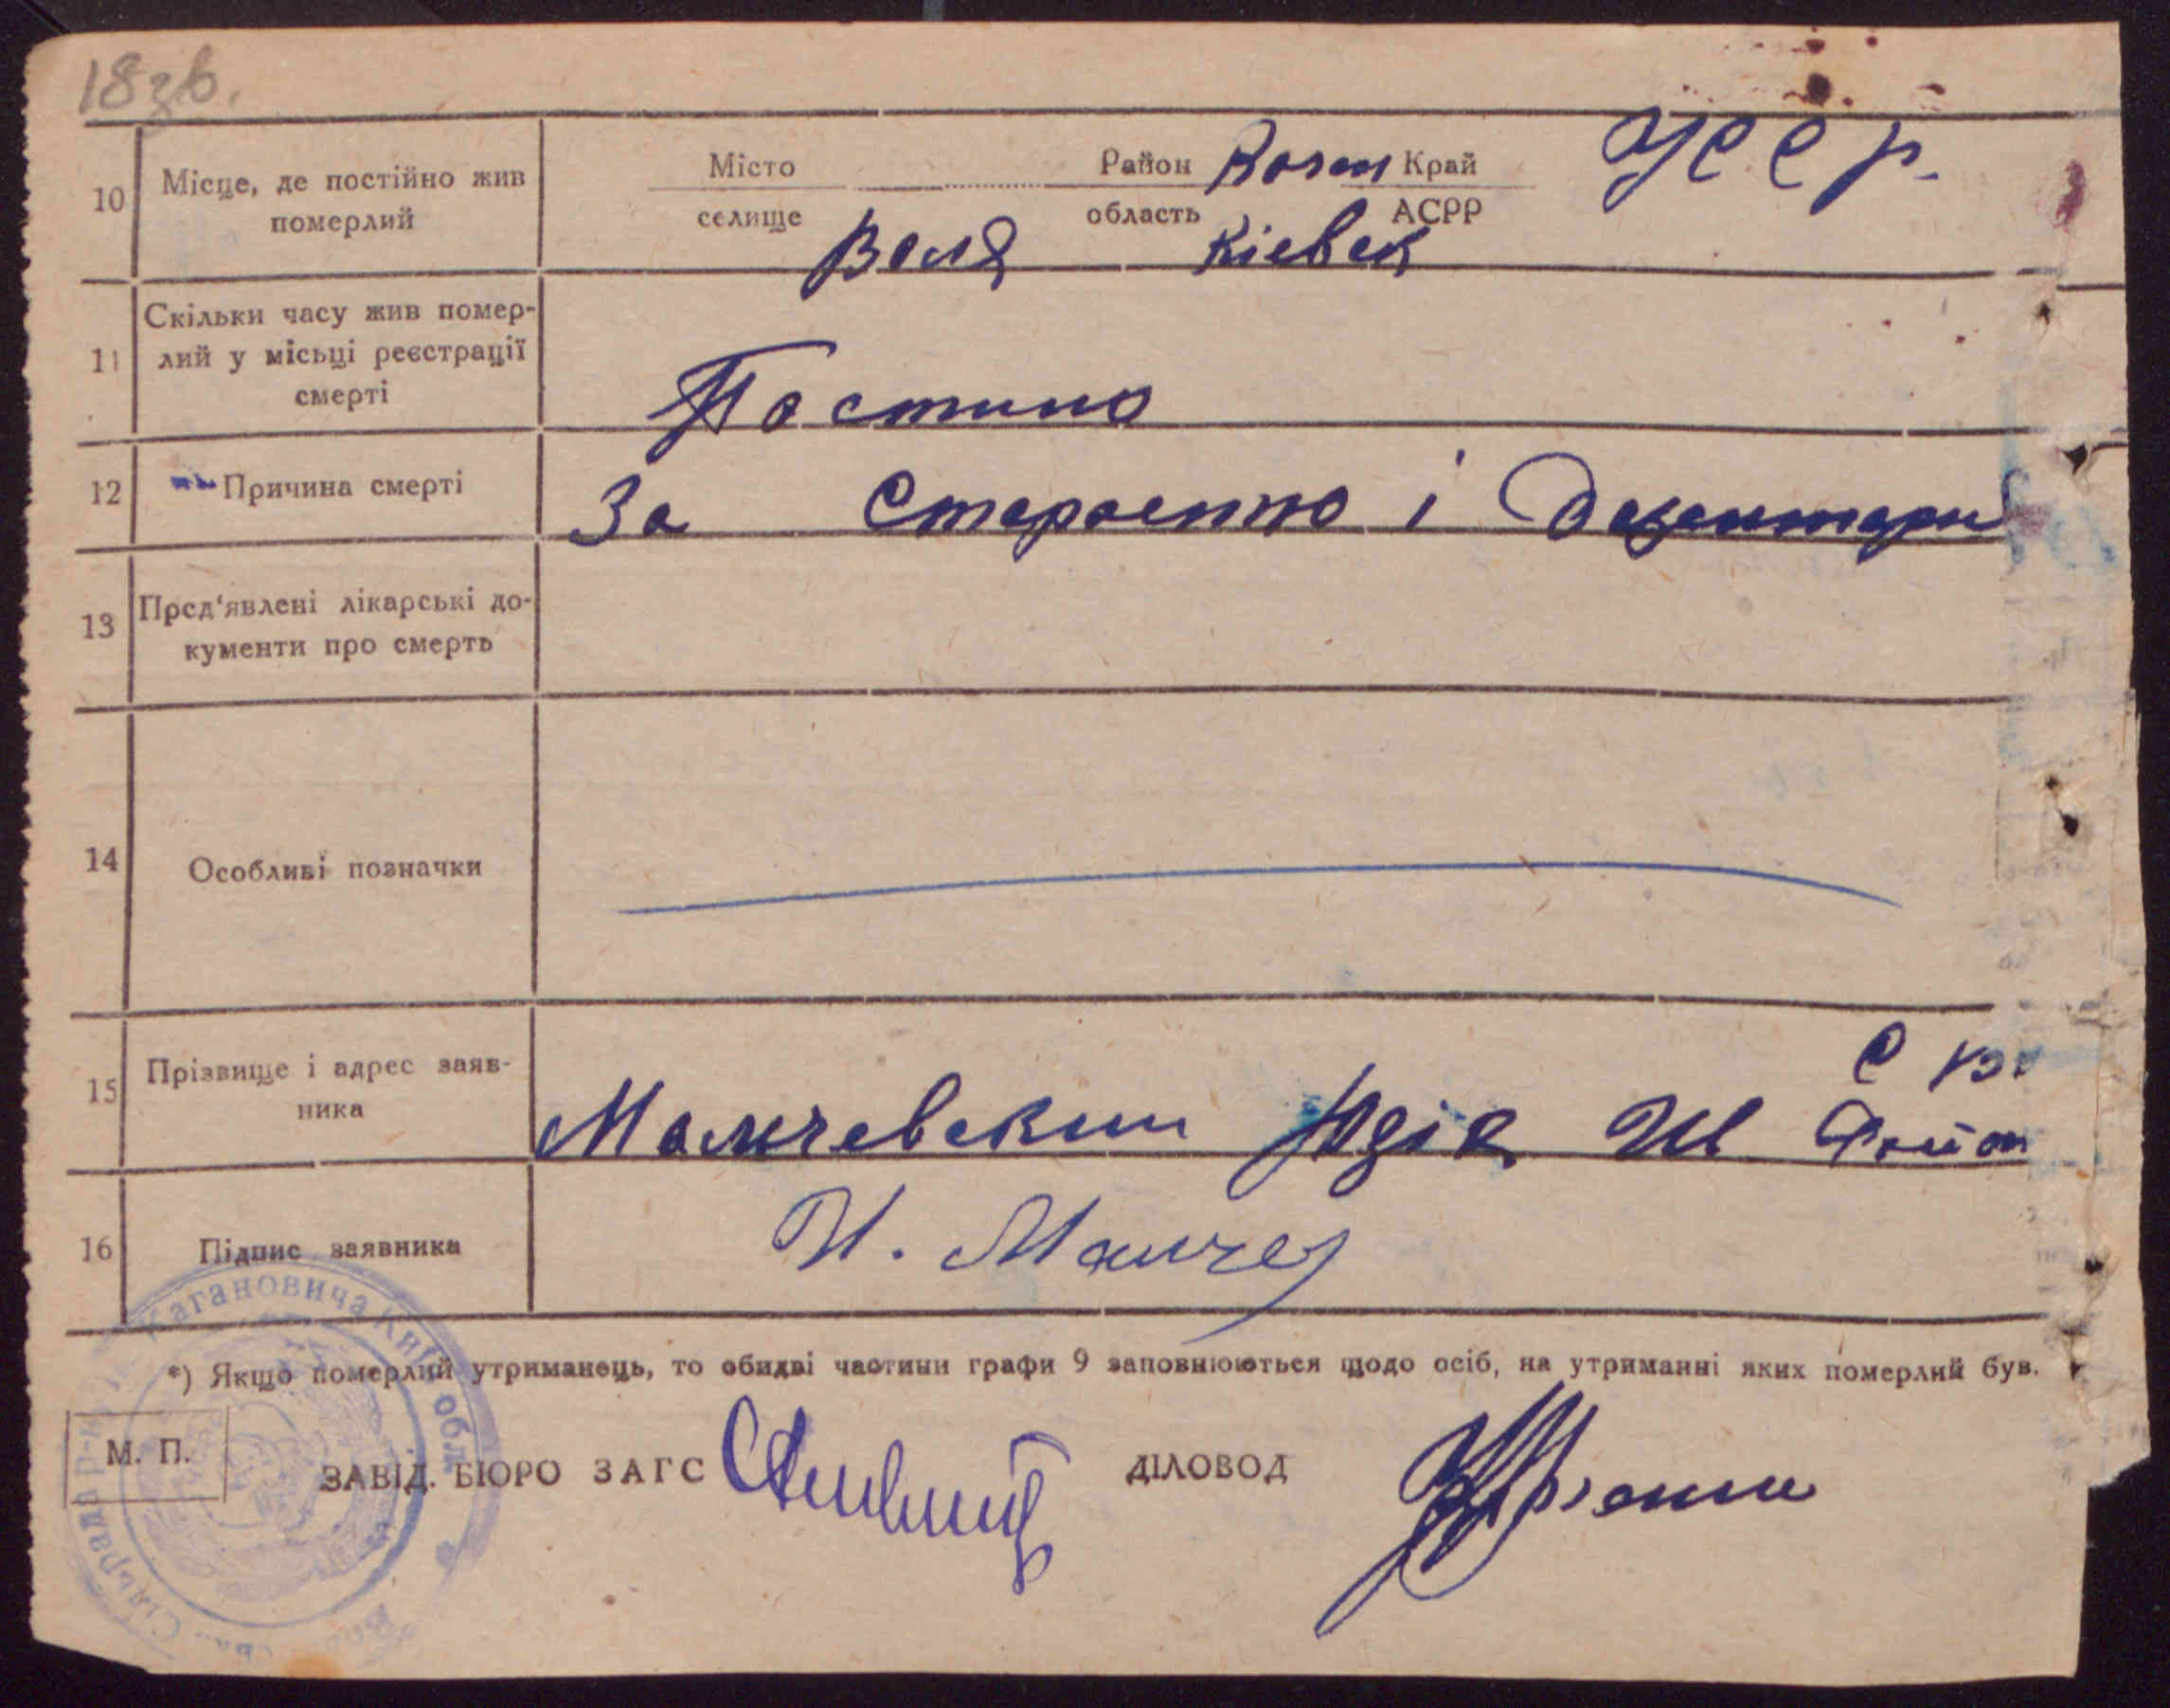 18зв.
10 Місце, де постійно жив померлий
Місто Район Край УССР.
селище Воля область Кіевск АСРР
11 Скільки часу жив помер-
лий у місьці реєстрації
смерті
Постино
12 Причина смерті
За Старостю і
13 Пред'явлені лікарські до-
кументи про смерть
14 Особливі позначки
15 Прізвище і адрес заяв-
ника
С
Мамчевский Юдік
16 Підпис заявника
*) Якщо померлий утриманець, то обидві частини графи 9 заповнюються щодо осіб, на утриманні яких померлий був.
М. П.
ЗАВІД. БЮРО ЗАГС ДІЛОВОД
Кагановича Київ обл
Сільрада